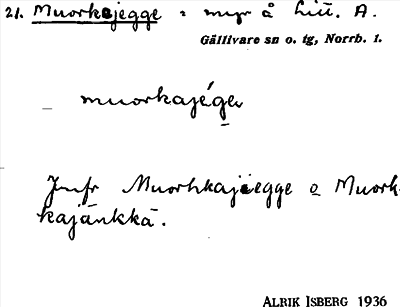 21. Muorkajegge = myr å Litt. A.
Gällivare sn o. tg, Norrb. l.
muorkajége
Jmfr Muorhkajiegge o Muork-
kajánkkă.
ALRIK ISBERG 1936